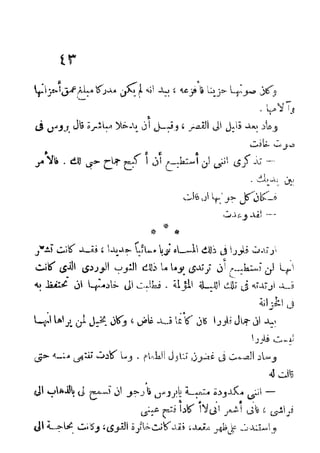 ٤٣
وكان صوتها حزينا فأفزعه ، بيد انه لم يكن مدركا مبلغ عمق أحزانها
وآلامها .
وعاد بعد قليل الى القصر ، وقبل أن يدخلا مباشرة قال بروس فى
صوت خافت
— تذكرى اننى لن أستطيع أن أكبح جماح حبى لك . فالأمر
بين يديك .
فكان كل جوابها ان قالت
— لقد وعدت
* * *
ارتدت فلورا فى ذلك المساء ثوبا مسائيا جديدا ، فقد كانت تشعر
انها لن تستطيع أن ترتدى يوما ما ذلك الثوب الوردى الذى كانت
قد ارتدته فى تلك الليلة المؤلمة . فطلبت الى خادمتها ان تحتفظ به
فى الخزانة
بيد ان جمال فلورا كان كأنما قد غاض ، وكان يخيل لمن يراها انها
ليست فلورا
وساد الصمت فى غضون تناول الطعام . وما كادت تنتهى منه حتى
قالت له
— اننى مكدودة متعبة يابروس فأرجو ان تسمح لى بالذهاب الى
فراشى ، فانى أشعر انى لا أكاد أفتح عينى
واستندت على ظهر مقعد، فقد كانت خائرة القوى، وكانت بحاجة الى